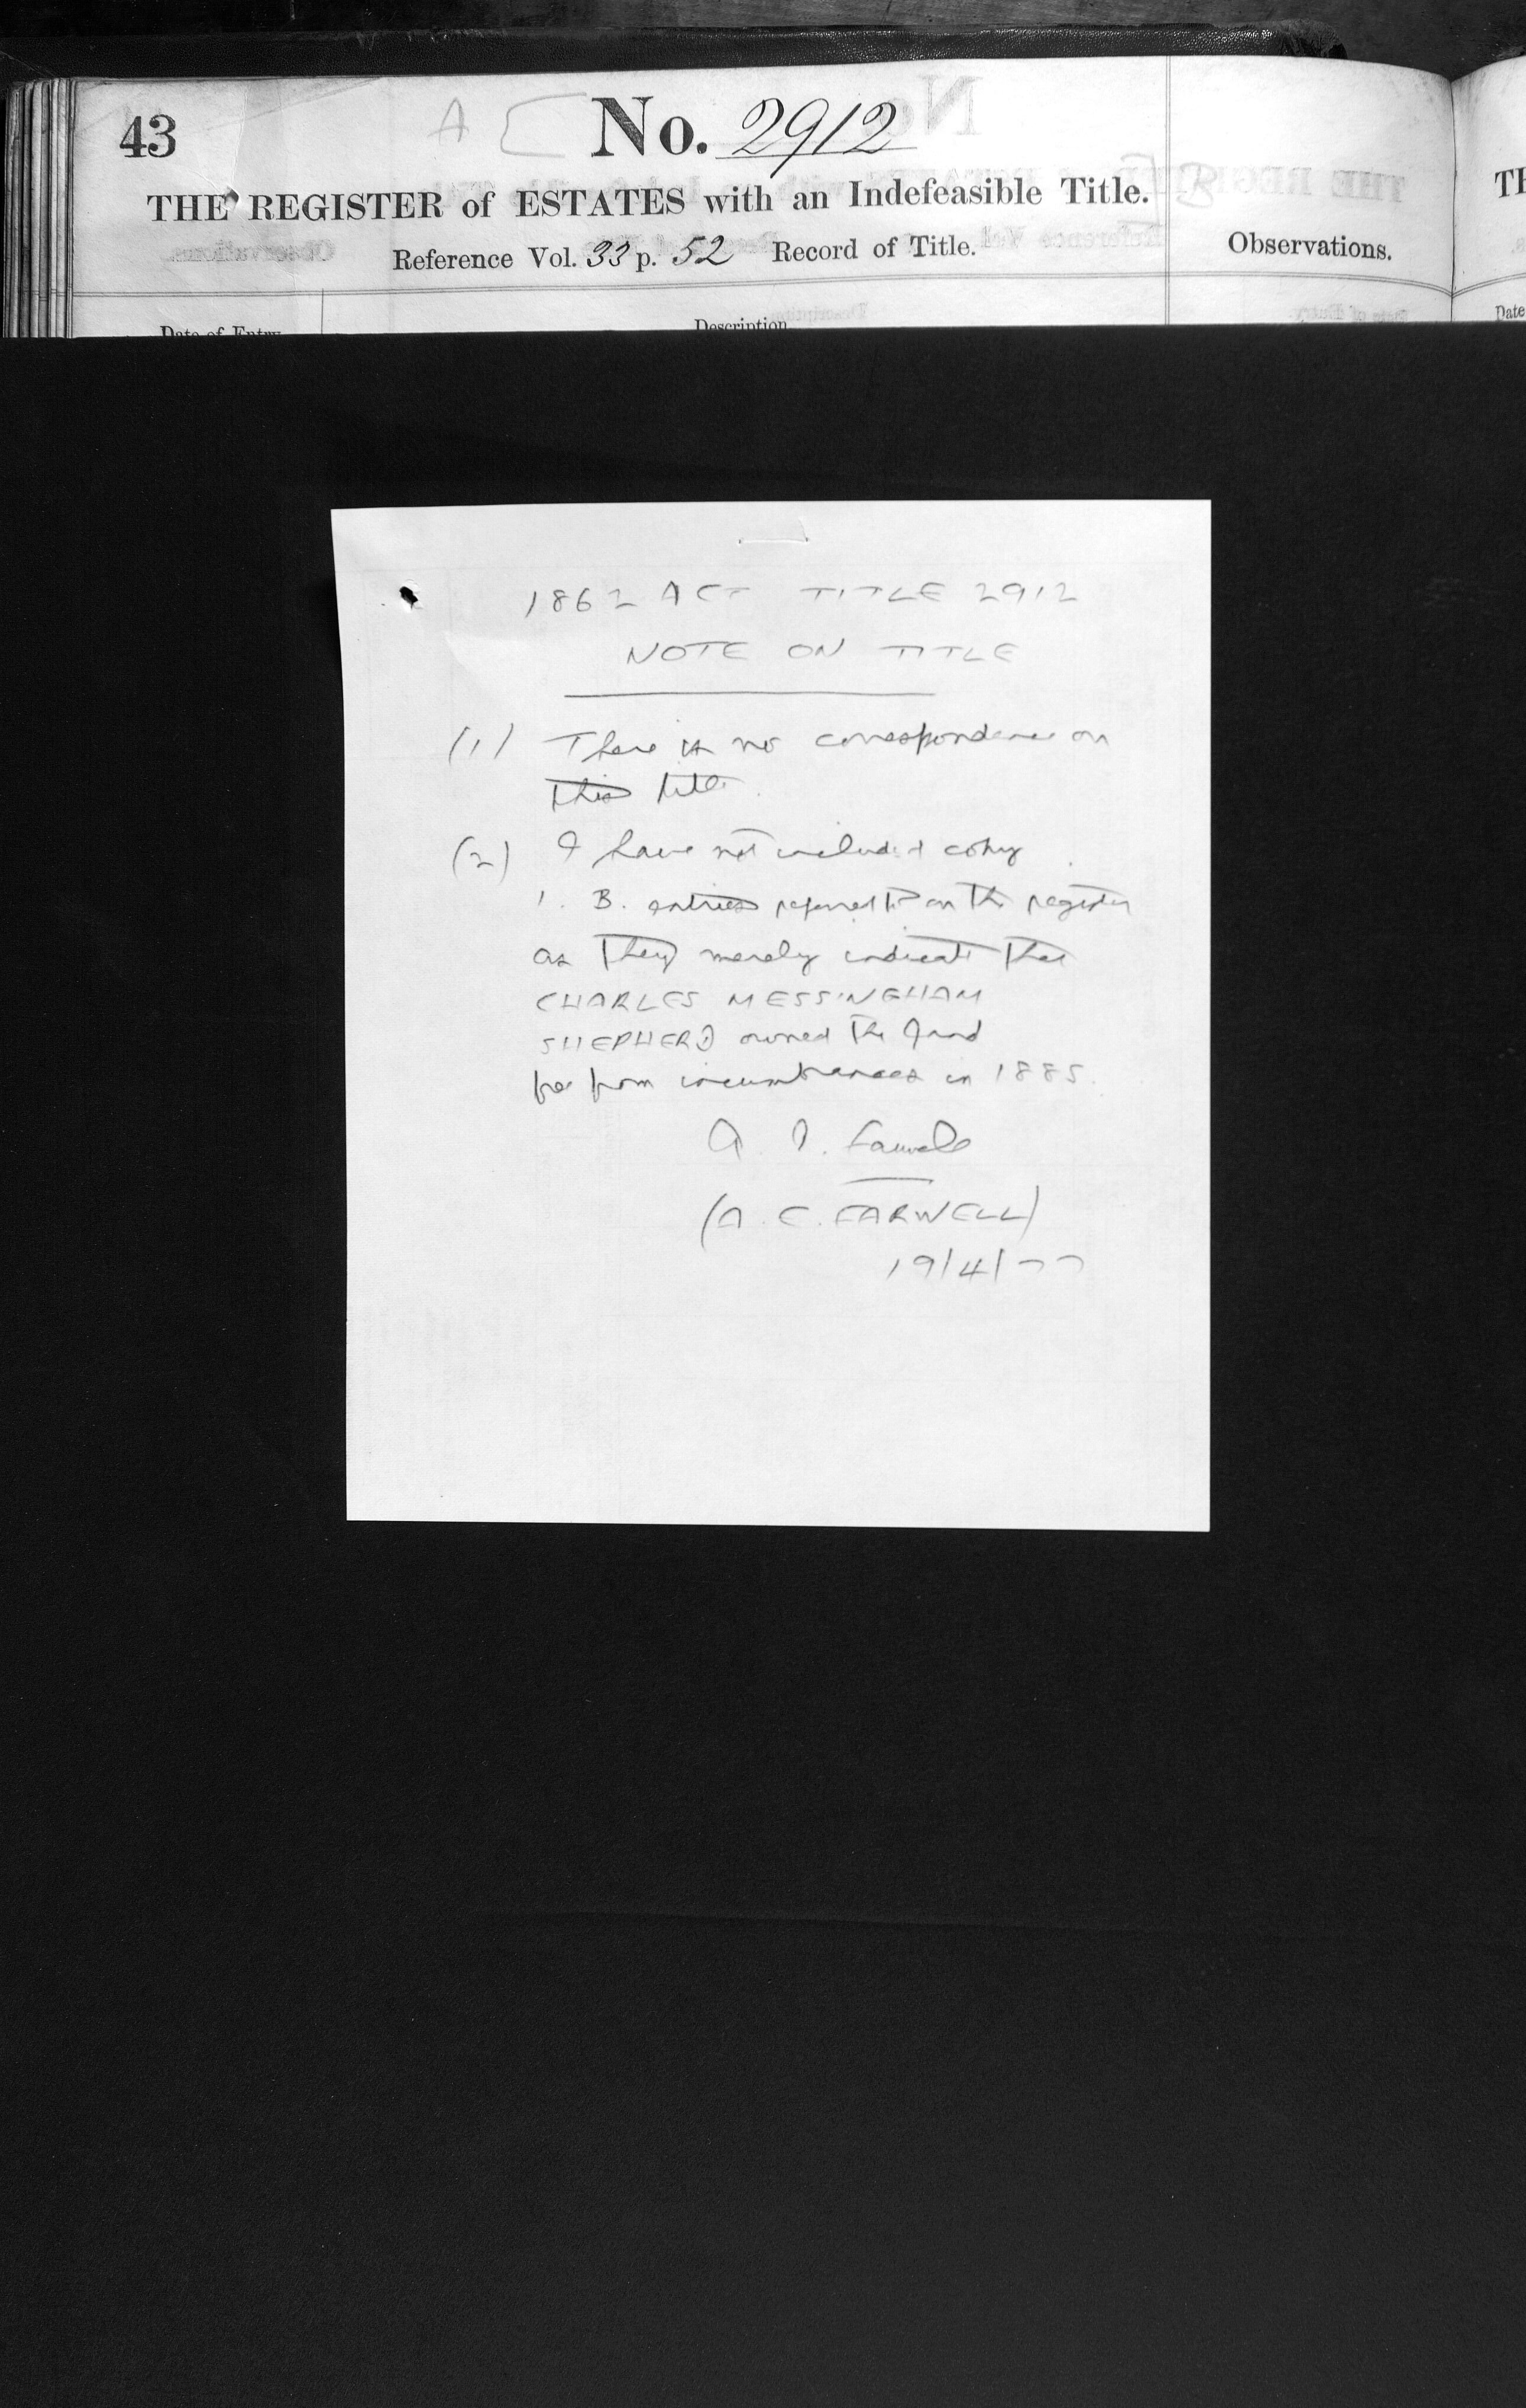 43
A [
No. 2912
THE REGISTER of ESTATES with an Indefeasible Title.
Reference Vol. 33 p. 52 Record of Title.
Observations.
Date of Entry
Description
Date
1862 ACT TITLE 2912
NOTE ON TITLE
(1) There is no correspondence on
this title.
(2) I have not included copy
I. B. entries referred to on the register
as they merely indicate that
CHARLES MESSINGHAM
SHEPHERD owned the land
free from incumbrances in 1885.
A. E. Farwell
(A. E. FARWELL)
19/4/77